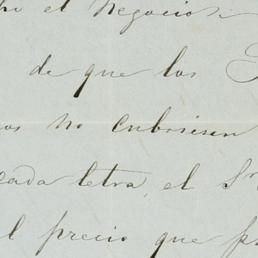 el negocio
de que los
no cubriesen
cada letra, el Sr
el precio que